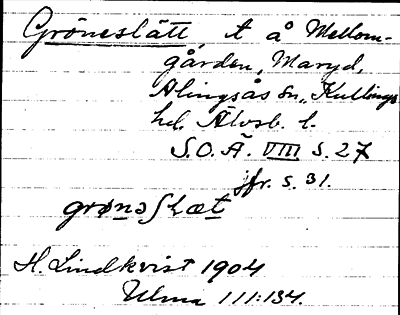 Gröneslätt, t å Mellom-
gården, Maryd,
Alingsås sn., Kullings
hd. Älvsb. l.
S.O.Ä. VIII s. 27
jfr. s. 31.
grønəʃlæt
H. Lindkvist 1904
Ulma 111:134.